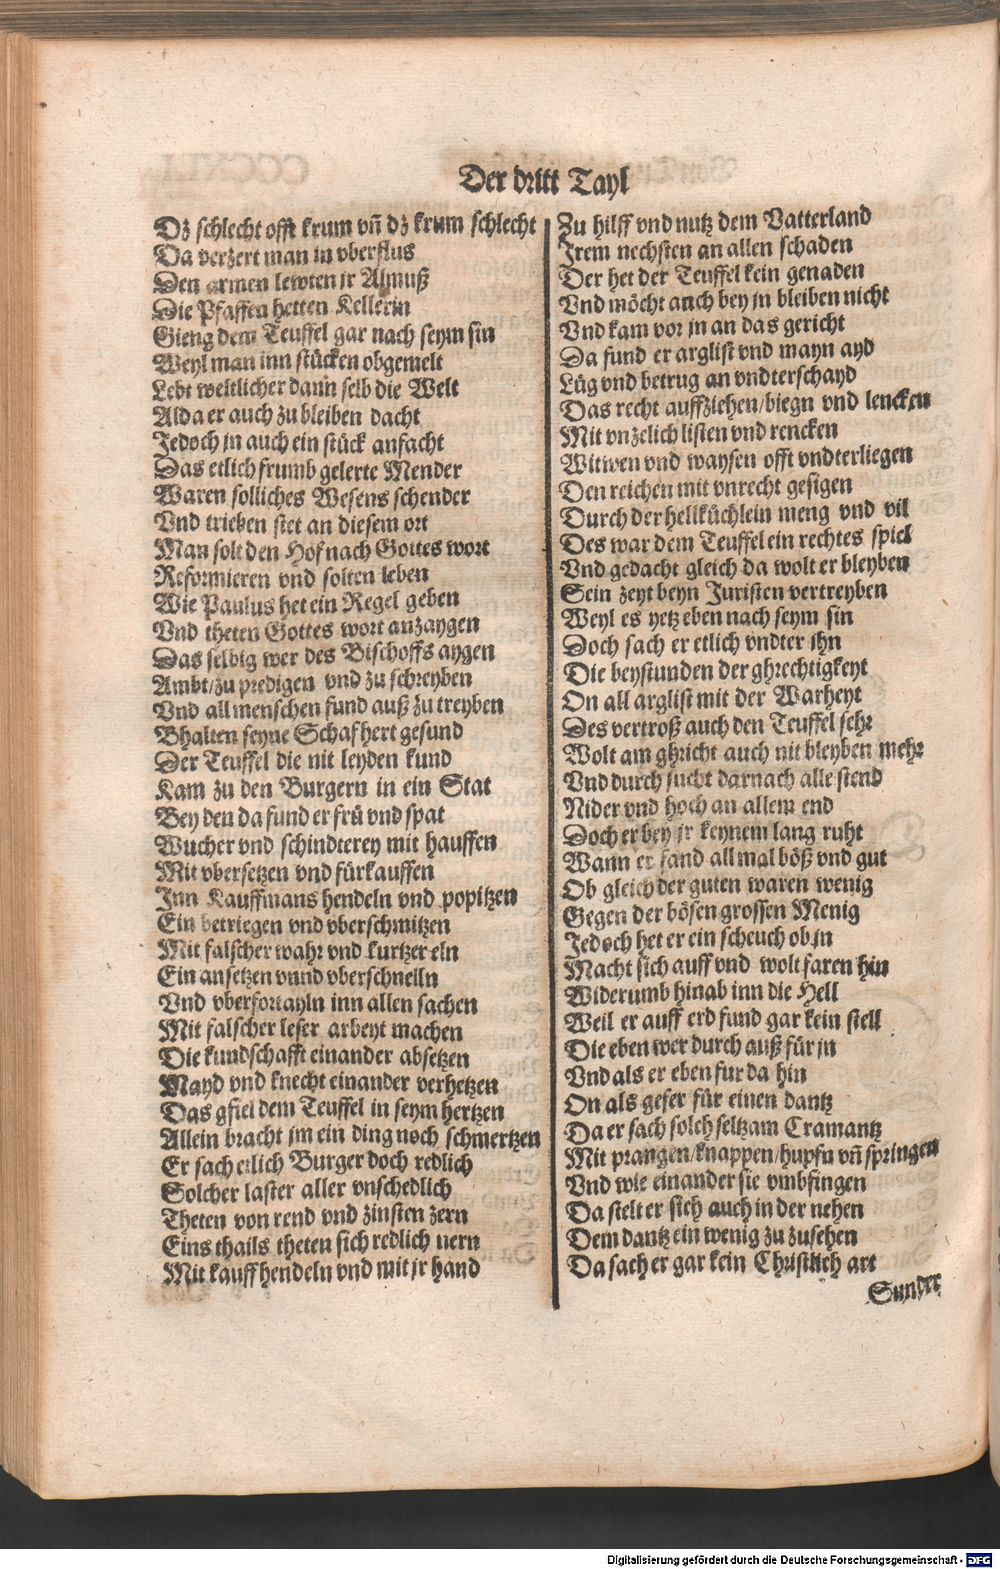 Der dritt Tayl
Dz schlecht offt krum vñ dz krum schlecht
Da verzert man in vberflus
Den armen lewten jr Almuß
Die Pfaffen hetten Kellerin
Gieng dem Teuffel gar nach seym sin
Weyl man inn stücken obgemelt
Lebt weltlicher dann selb die Welt
Alda er auch zu bleiben dacht
Jedoch jn auch ein stück anfacht
Das etlich frumb gelerte Mender
Waren solliches Wesens schender
Vnd trieben stet an diesem ort
Man solt den Hof nach Gottes wort
Reformieren vnd solten leben
Wie Paulus het ein Regel geben
Vnd theten Gottes wort anzaygen
Das selbig wer des Bischoffs aygen
Ambt/zu predigen vnd zu schreyben
Vnd all menschen fund auß zu treyben
Bhalten seyne Schaf hert gesund
Der Teuffel die nit leyden kund
Kam zu den Burgern in ein Stat
Bey den da fund er frü vnd spat
Wucher vnd schindterey mit hauffen
Mit vbersetzen vnd fürkauffen
Inn Kauffmans hendeln vnd popitzen
Ein betriegen vnd vberschmitzen
Mit falscher wahr vnd kurtzer eln
Ein ansetzen vnnd vberschnelln
Vnd vberfortayln inn allen sachen
Mit falscher leser arbeyt machen
Die kundschafft einander absetzen
Mayd vnd knecht einander verhetzen
Das gfiel dem Teuffel in seym hertzen
Allein bracht jm ein ding noch schmertzen
Er sach etlich Burger doch redlich
Solcher laster aller vnschedlich
Theten von rend vnd zinsten zern
Eins thails theten sich redlich nern
Mit kauff hendeln vnd mit jr hand
Zu hilff vnd nutz dem Vatterland
Irem nechsten an allen schaden
Der het der Teuffel kein genaden
Vnd möcht auch bey jn bleiben nicht
Vnd kam vor jn an das gericht
Da fund er arglist vnd mayn ayd
Lüg vnd betrug an vndterschayd
Das recht auffziehen/biegn vnd lencken
Mit vnzelich listen vnd rencken
Witwen vnd waysen offt vndterliegen
Den reichen mit vnrecht gesigen
Durch der hellküchlein meng vnd vil
Des war dem Teuffel ein rechtes spiel
Vnd gedacht gleich da wolt er bleyben
Sein zeyt beyn Juristen vertreyben
Weyl es yetz eben nach seym sin
Doch sach er etlich vndter jhn
Die beystunden der ghrechtigkeyt
On all arglist mit der Warheyt
Des vertroß auch den Teuffel sehr
Wolt am ghricht auch nit bleyben mehr
Vnd durch sucht darnach alle stend
Nider vnd hoch an allem end
Doch er bey jr keynem lang ruht
Wann er fand all mal böß vnd gut
Ob gleich der guten waren wenig
Gegen der bösen grossen Menig
Jedoch het er ein scheuch ob jn
Macht sich auff vnd wolt faren hin
Widerumb hinab inn die Hell
Weil er auff erd fund gar kein stell
Die eben wer durch auß für jn
Vnd als er eben fur da hin
On als gefer für einen dantz
Da er sach solch seltzam Cramantz
Mit prangen/knappen/hupfn vñ springen
Vnd wie einander sie vmbfingen
Da stelt er sich auch in der nehen
Dem dantz ein wenig zu zusehen
Da sach er gar kein Christlich art
Sunder
Digitalisierung gefördert durch die Deutsche Forschungsgemeinschaft - DFG